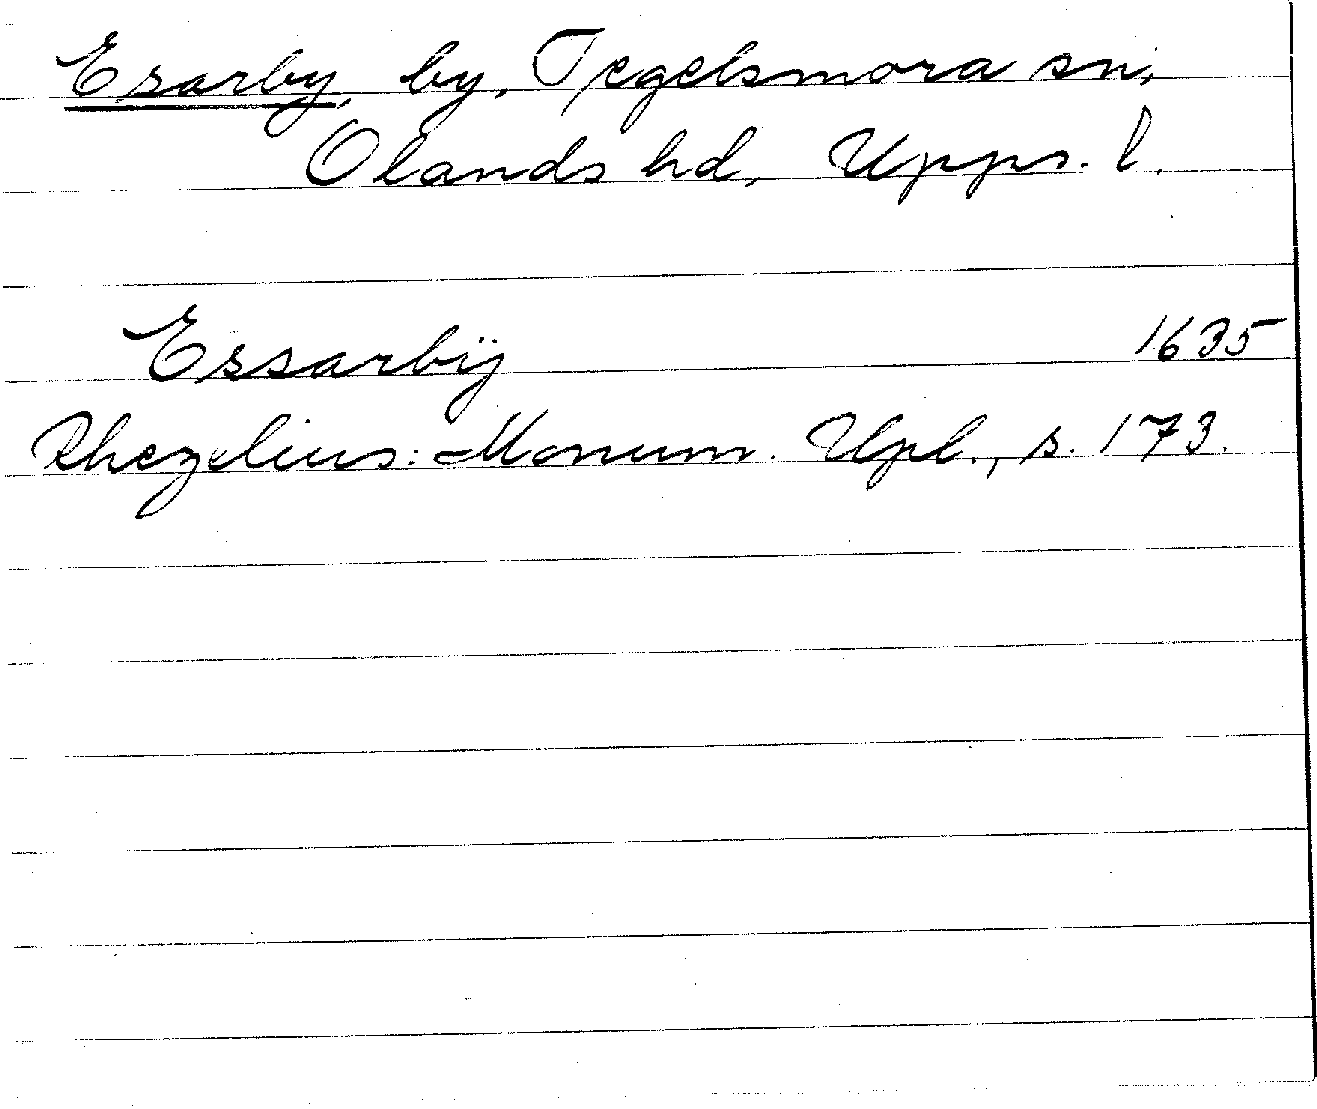 Esarby, by, Tegelsmora sn,
Olands hd, Upps. l.
Essarbÿ 1635
Rhezelius: Monum. Upl., s. 173.